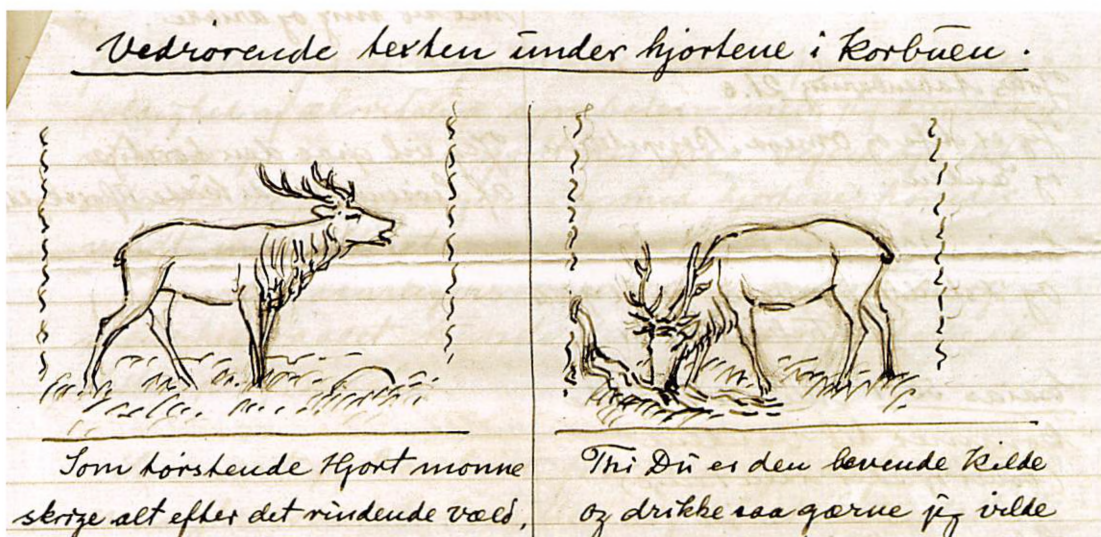 Vedrørende texten under hjortene i Korbuen.
Som tørstende Hjort monne
skrige alt efter det rindende væld,
Thi Du er den levende Kilde
og drikke saa gærne jeg vilde